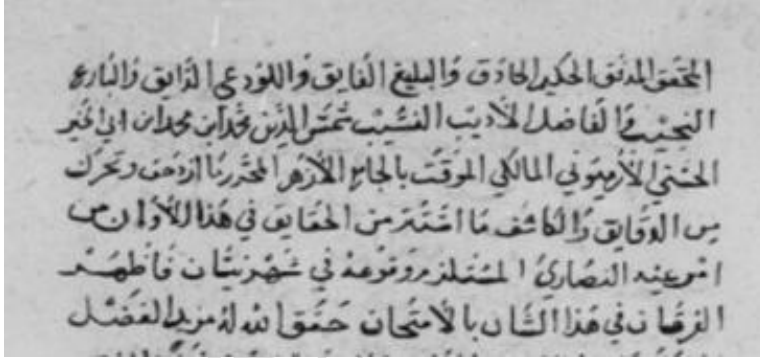 المحقق المدقق الحكيم الحاذق والبليغ الفايق واللوذعي الذايق والبارع
النجيب والفاضل الاديب النسيب شمس الدين محمد ابن محمد ابن ابي الخير
الحسني الارميوني المالكي الموقت بالجامع الازهر المحرر لما ازدحف وتحرك
من الدقايق والكاشف ما استتر من الحقايق في هذا الاوان من
امر عيد النصاري المستلزم وقوعه في شهر نيسان فاظهر
الفرقان في هذا الشان بالامتحان حقق الله له مزيد الفضل